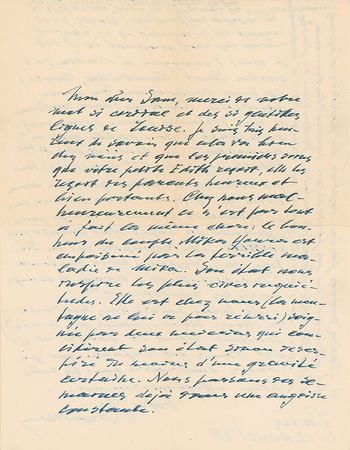 Mon cher Sam, merci de votre
mot si cordial et des si gentilles
lignes de Louise. Je suis très heu-
reux de savoir que cela va bien
chez vous et que les premiers soins
que votre petite Edith reçoit, elle les
reçoit des parents heureux et
bien portants. Chez nous mal-
heureusement ce n'est pas tout
à fait la même chose: le bon-
heur du couple Mika Youra est
empoisonné par la terrible ma-
ladie de Mika. Son état nous
inspire les plus vives inquié-
tudes. Elle est chez nous (la mon-
tagne ne lui a pas réussi) soig-
née par deux médecins qui con-
sidèrent son état sinon déses-
péré du moins d'une gravité
certaine. Nous passons des se-
maines déjà dans une angoisse
constante.